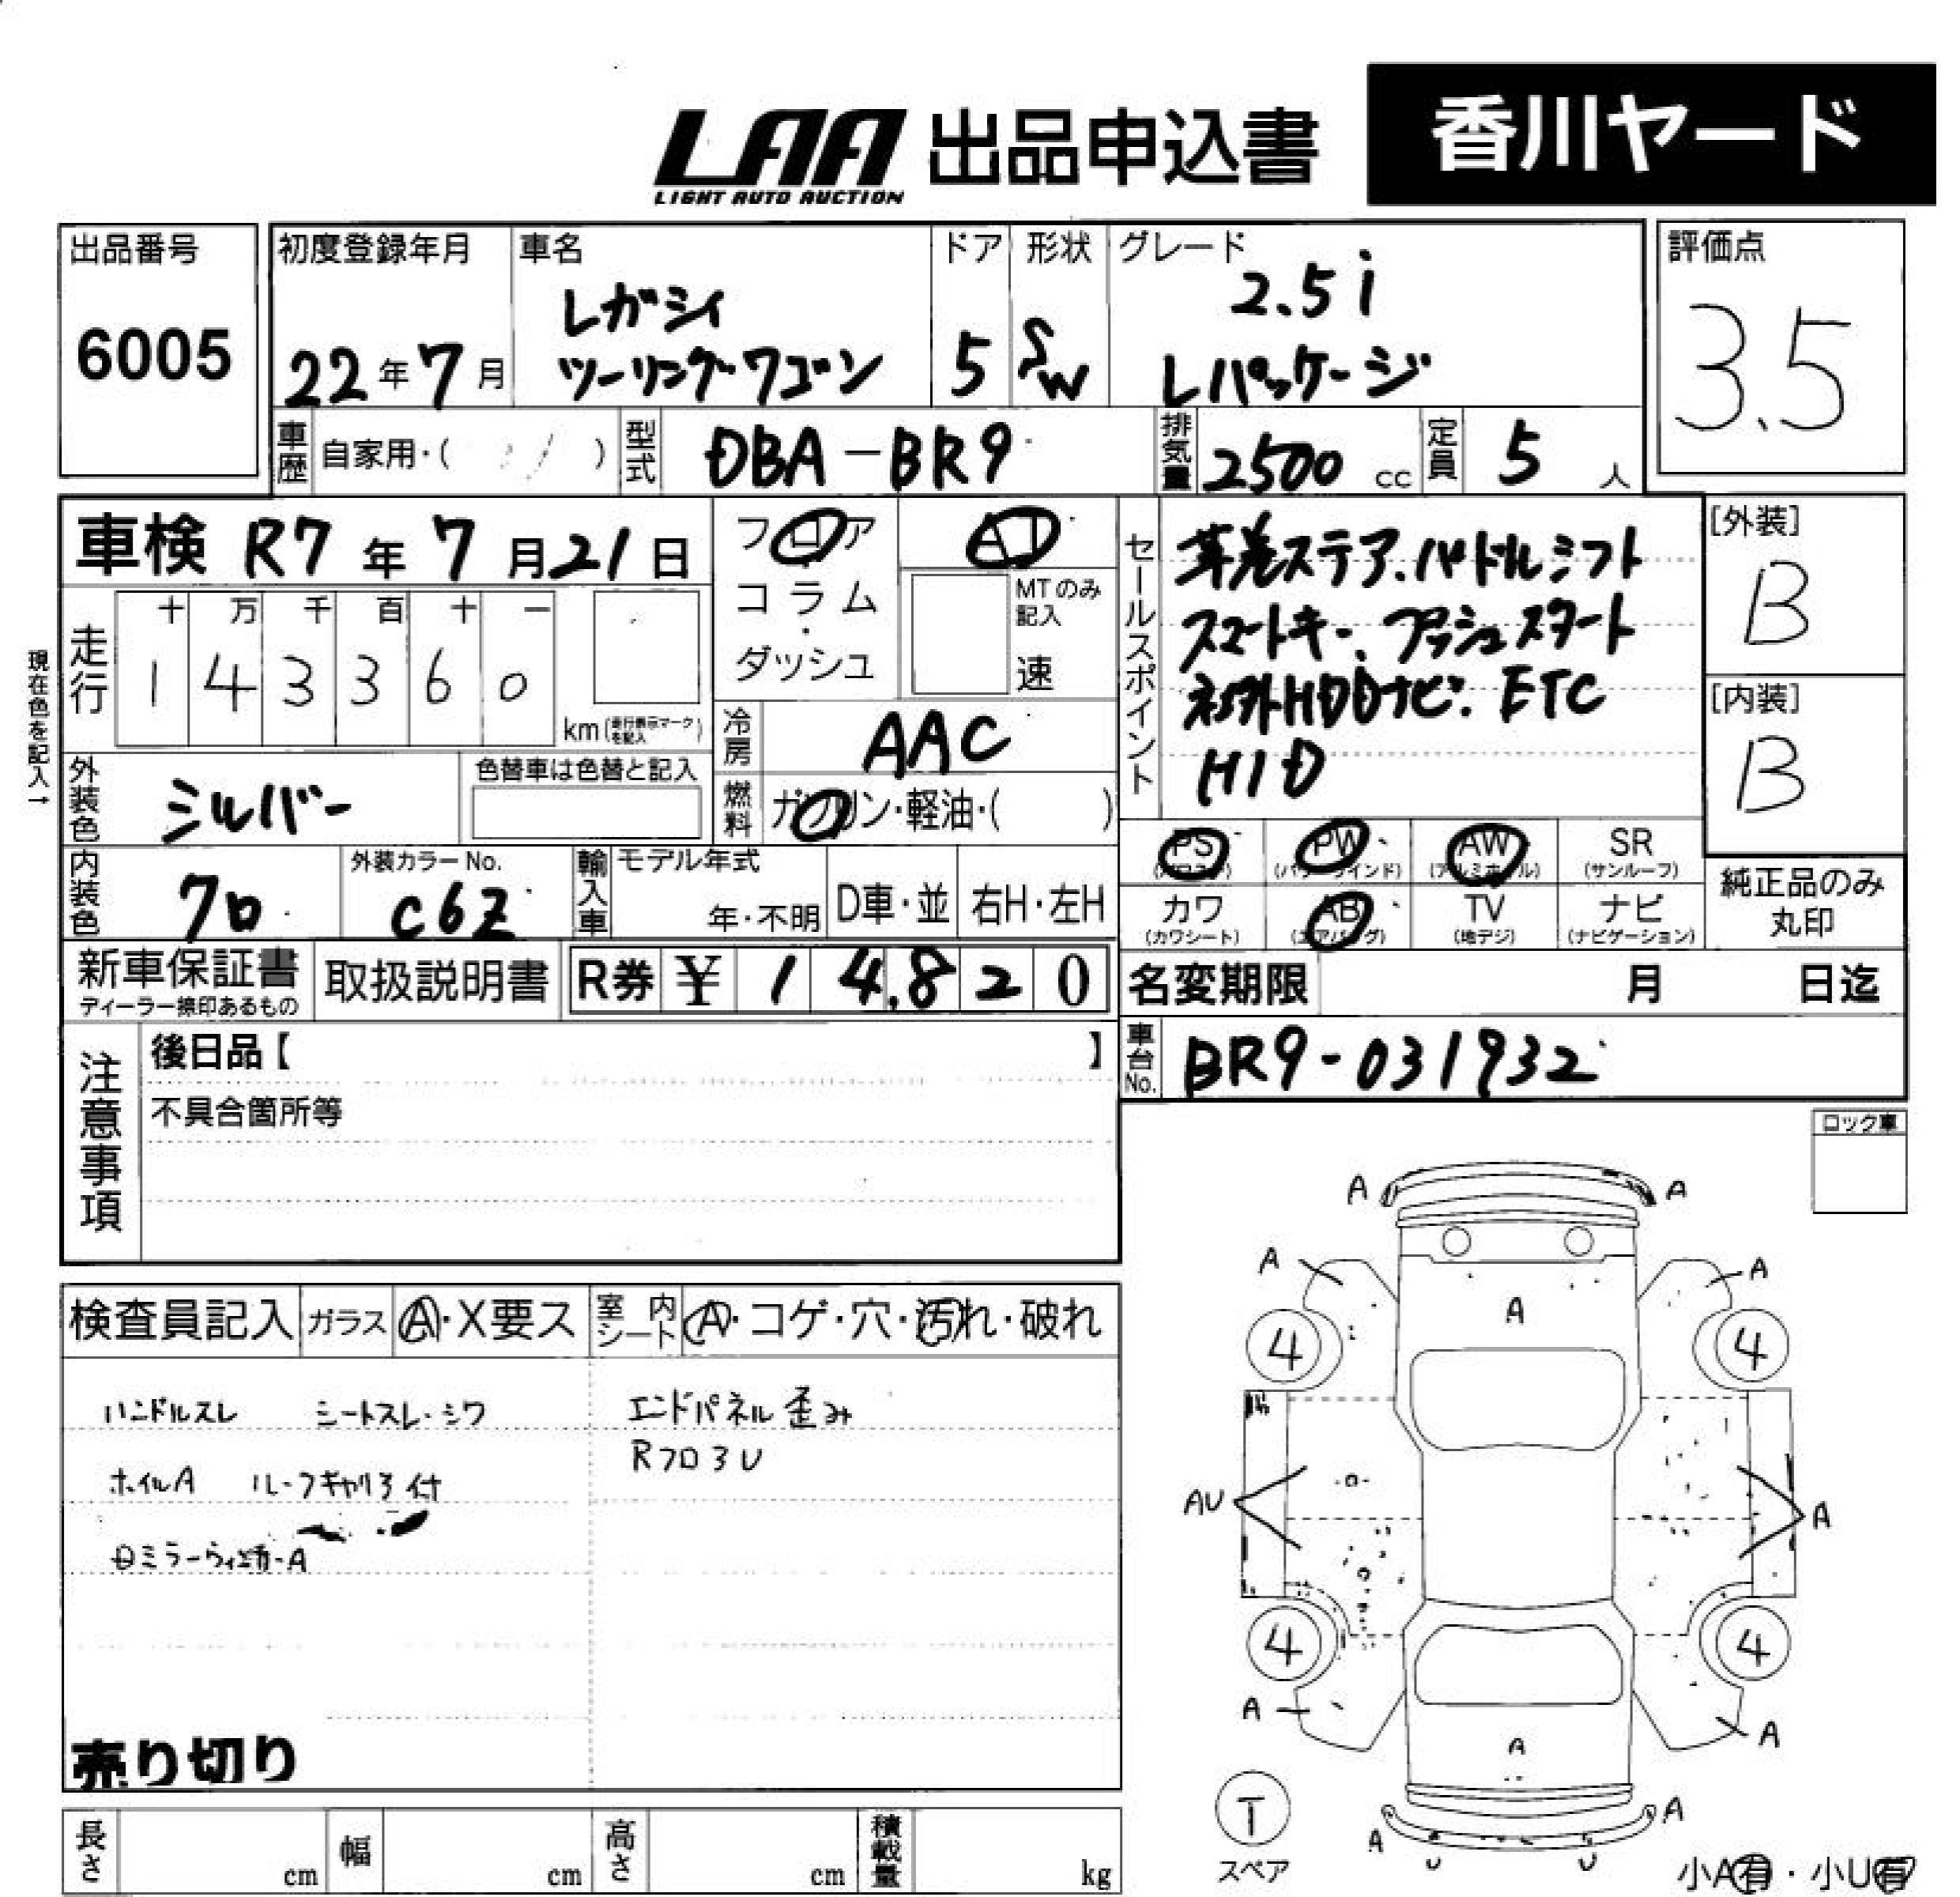 LAA 出品申込書 香川ヤード
LIGHT AUTO AUCTION
出品番号 6005
初度登録年月 22年7月
車名 レガシィ
ツーリングワゴン
ドア 5
形状 SW
グレード 2.5i
Lパッケージ
評価点 3.5
車歴 自家用・( )
型式 DBA-BR9
排気量 2500cc
定員 5人
車検 R7年7月21日
フロア
コラム
・
ダッシュ
AT
MTのみ
記入
速
セールスポイント
革巻ステア.パドルシフト
スマートキー、プッシュスタート
社外HDDナビ. ETC
HID
[外装]
B
[内装]
B
現在色を記入→
走行 十 万 千 百 十 一
1 4 3 3 6 0
km(走行表示マークを記入)
冷房 AAC
燃料 ガソリン・軽油・( )
外装色 シルバー
色替車は色替と記入
内装色 クロ
外装カラーNo.
C6Z
輸入車 モデル年式
年・不明 D車・並 右H・左H
PS PW AW SR
(パワステ) (パワーウインド) (アルミホイル) (サンルーフ)
カワ AB TV ナビ
(カワシート) (エアバッグ) (地デジ) (ナビゲーション)
純正品のみ
丸印
新車保証書
ディーラー捺印あるもの
取扱説明書
R券 ¥ 1 4,8 2 0
名変期限 月 日迄
車台No. BR9-031932
注意事項
後日品【 】
不具合箇所等
ロック車
検査員記入 ガラス A・X要ス 室内シート A・コゲ・穴・汚れ・破れ
ハンドルスレ シートスレ・シワ
ホイルA ルーフキャリア付
エンドパネル歪み
Rフロ3U
売り切り
A A
A A
A
4 4
AU A
4 4
A A
A
A A
U U
T
スペア
小A有・小U有
長さ cm 幅 cm 高さ cm 積載量 kg